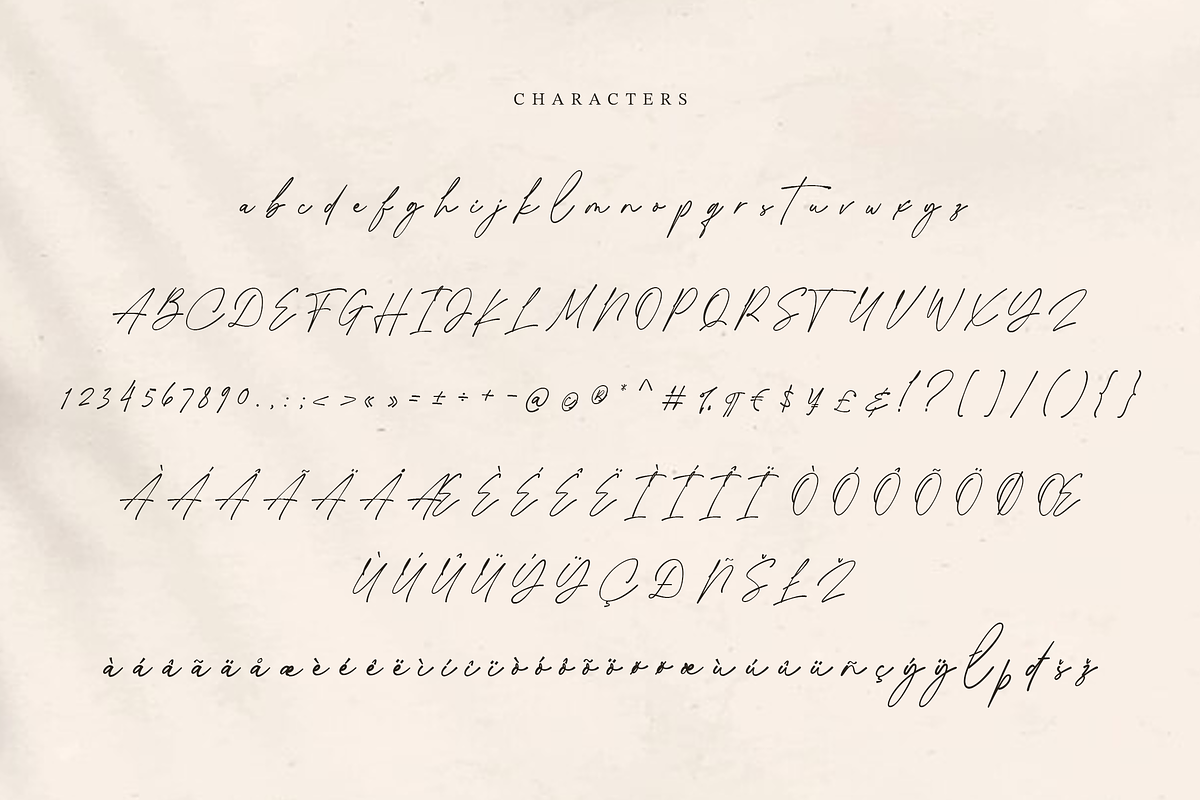 CHARACTERS
a b c d e f g h i j k l m n o p q r s t u v w x y z
A B C D E F G H I J K L M N O P Q R S T U V W X Y Z
1 2 3 4 5 6 7 8 9 0 . , : ; < > « » = ± ÷ + - @ © ® * ^ # % ¶ € $ ¥ £ & ! ? [ ] / ( ) { }
À Á Â Ã Ä Å Æ È É Ê Ë Ì Í Î Ï Ò Ó Ô Õ Ö Ø Œ
Ù Ú Û Ü Ý Ÿ Ç Ð Ñ Š Ł Ž
à á â ã ä å æ è é ê ë ì í î ï ò ó ô õ ö ø œ ù ú û ü ñ ç ý ÿ ł þ đ š ž